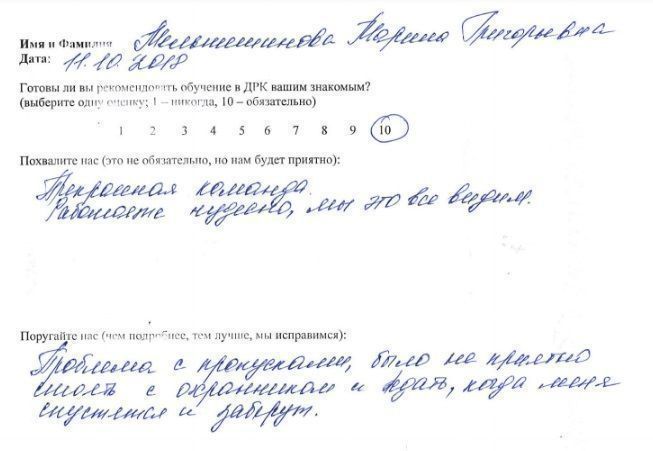 Имя и Фамилия Мельнишинова Марина Григорьевна
Дата: 11.10.2018
Готовы ли вы рекомендовать обучение в ДРК вашим знакомым?
(выберите одну оценку; 1 – никогда, 10 – обязательно)
1 2 3 4 5 6 7 8 9 10
Похвалите нас (это не обязательно, но нам будет приятно):
Прекрасная команда.
Работаете чудесно, мы это все видим.
Поругайте нас (чем подробнее, тем лучше, мы исправимся):
Проблема с пропусками, было не приятно
стоять с охранником и ждать, когда меня
спустятся и заберут.